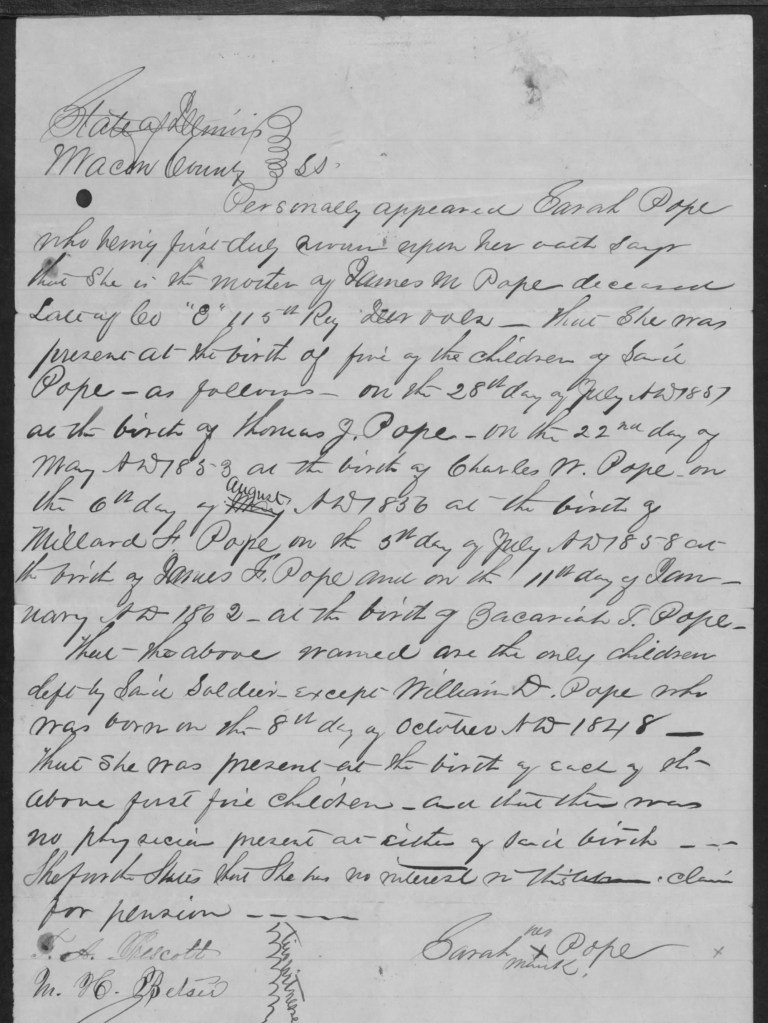 State of Illinois
Macon County } SS.
Personally appeared Sarah Pope
who being first duly sworn upon her oath says
that She is the mother of James M Pope deceased
Late of Co "C" 115th Reg Ills vols – that She was
present at the birth of five of the children of Said
Pope – as follows – on the 28th day of July AD 1851
at the birth of Thomas J. Pope – on the 22nd day of
May AD 1853 at the birth of Charles W. Pope – on
the 6th day of August AD 1856 at the birth of
Millard F. Pope on the 5th day of July AD 1858 at
the birth of James F. Pope and on the 11th day of Jan–
nuary AD 1862 – at the birth of Zacariah T. Pope –
That the above named are the only children
left by Said Soldier – except William D. Pope who
was born on the 8th day of October AD 1848 —
that she was present at the birth of each of the
above first five children – and that there was
no physician present at either of said birth – – –
She furth States that She has no interest in this claim
for pension – – – –
T. A. Prescott
M. H. Belsir
Sarah X Pope
mark